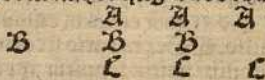 A A A
B B B
C C C